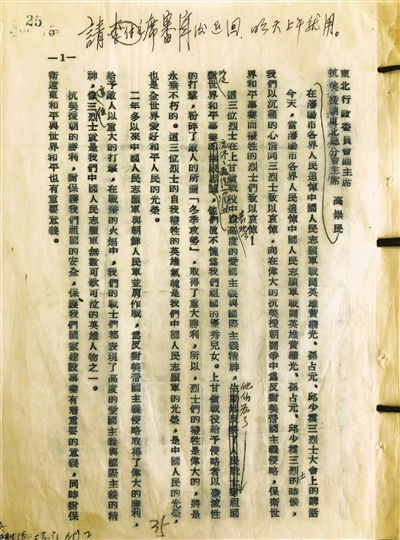 25
請
席審
退回
明天上午就用。
—1—
東北行政委員會副主席
抗美援朝東北總分會主席　高崇民
在瀋陽市各界人民追悼中國人民志願軍戰鬪英雄黃繼光、孫占元、邱少雲三烈士大會上的講話
今天，當瀋陽市各界人民追悼中國人民志願軍戰鬪英雄黃繼光、孫占元、邱少雲三烈士的時候，
我們以沉痛的心情向三烈士致以哀悼，向在偉大的抗美援朝鬪爭中為反對美帝國主義侵略，保衛世
界和平事業而犧牲的烈士們致以哀悼！
這三位烈士在上甘嶺戰役中以高度的愛國主義與國際主義精神，
獻世界和平事業的
他們真不愧為我們祖國的優秀兒女。上甘嶺戰役給予侵略者以毀滅性
的打擊，粉碎了敵人的所謂「冬季攻勢」，取得了重大勝利，所以，烈士們的犧牲是偉大的，將是
永垂不朽的。這三位烈士的自我犧牲的英雄氣魄是我們中國人民志願軍的光榮，是中國人民的光榮，
也是全世界愛好和平人民的光榮。
二年多以來中國人民志願軍與朝鮮人民軍並肩作戰，為反對美帝國主義侵略取得了偉大的勝利，
給予敵人以重大的打擊，在戰爭的火焰中，我們的戰士們都表現了高度的愛國主義與國際主義的精
神，像三烈士就是我們中國人民志願軍無數可歌可泣的英雄人物之一。
抗美援朝的勝利，對保護我們祖國的安全，保護我們國家建設事業有着重要的意義，同時對保
衛遠東和平與世界和平也有重要意義。
他們為了
35